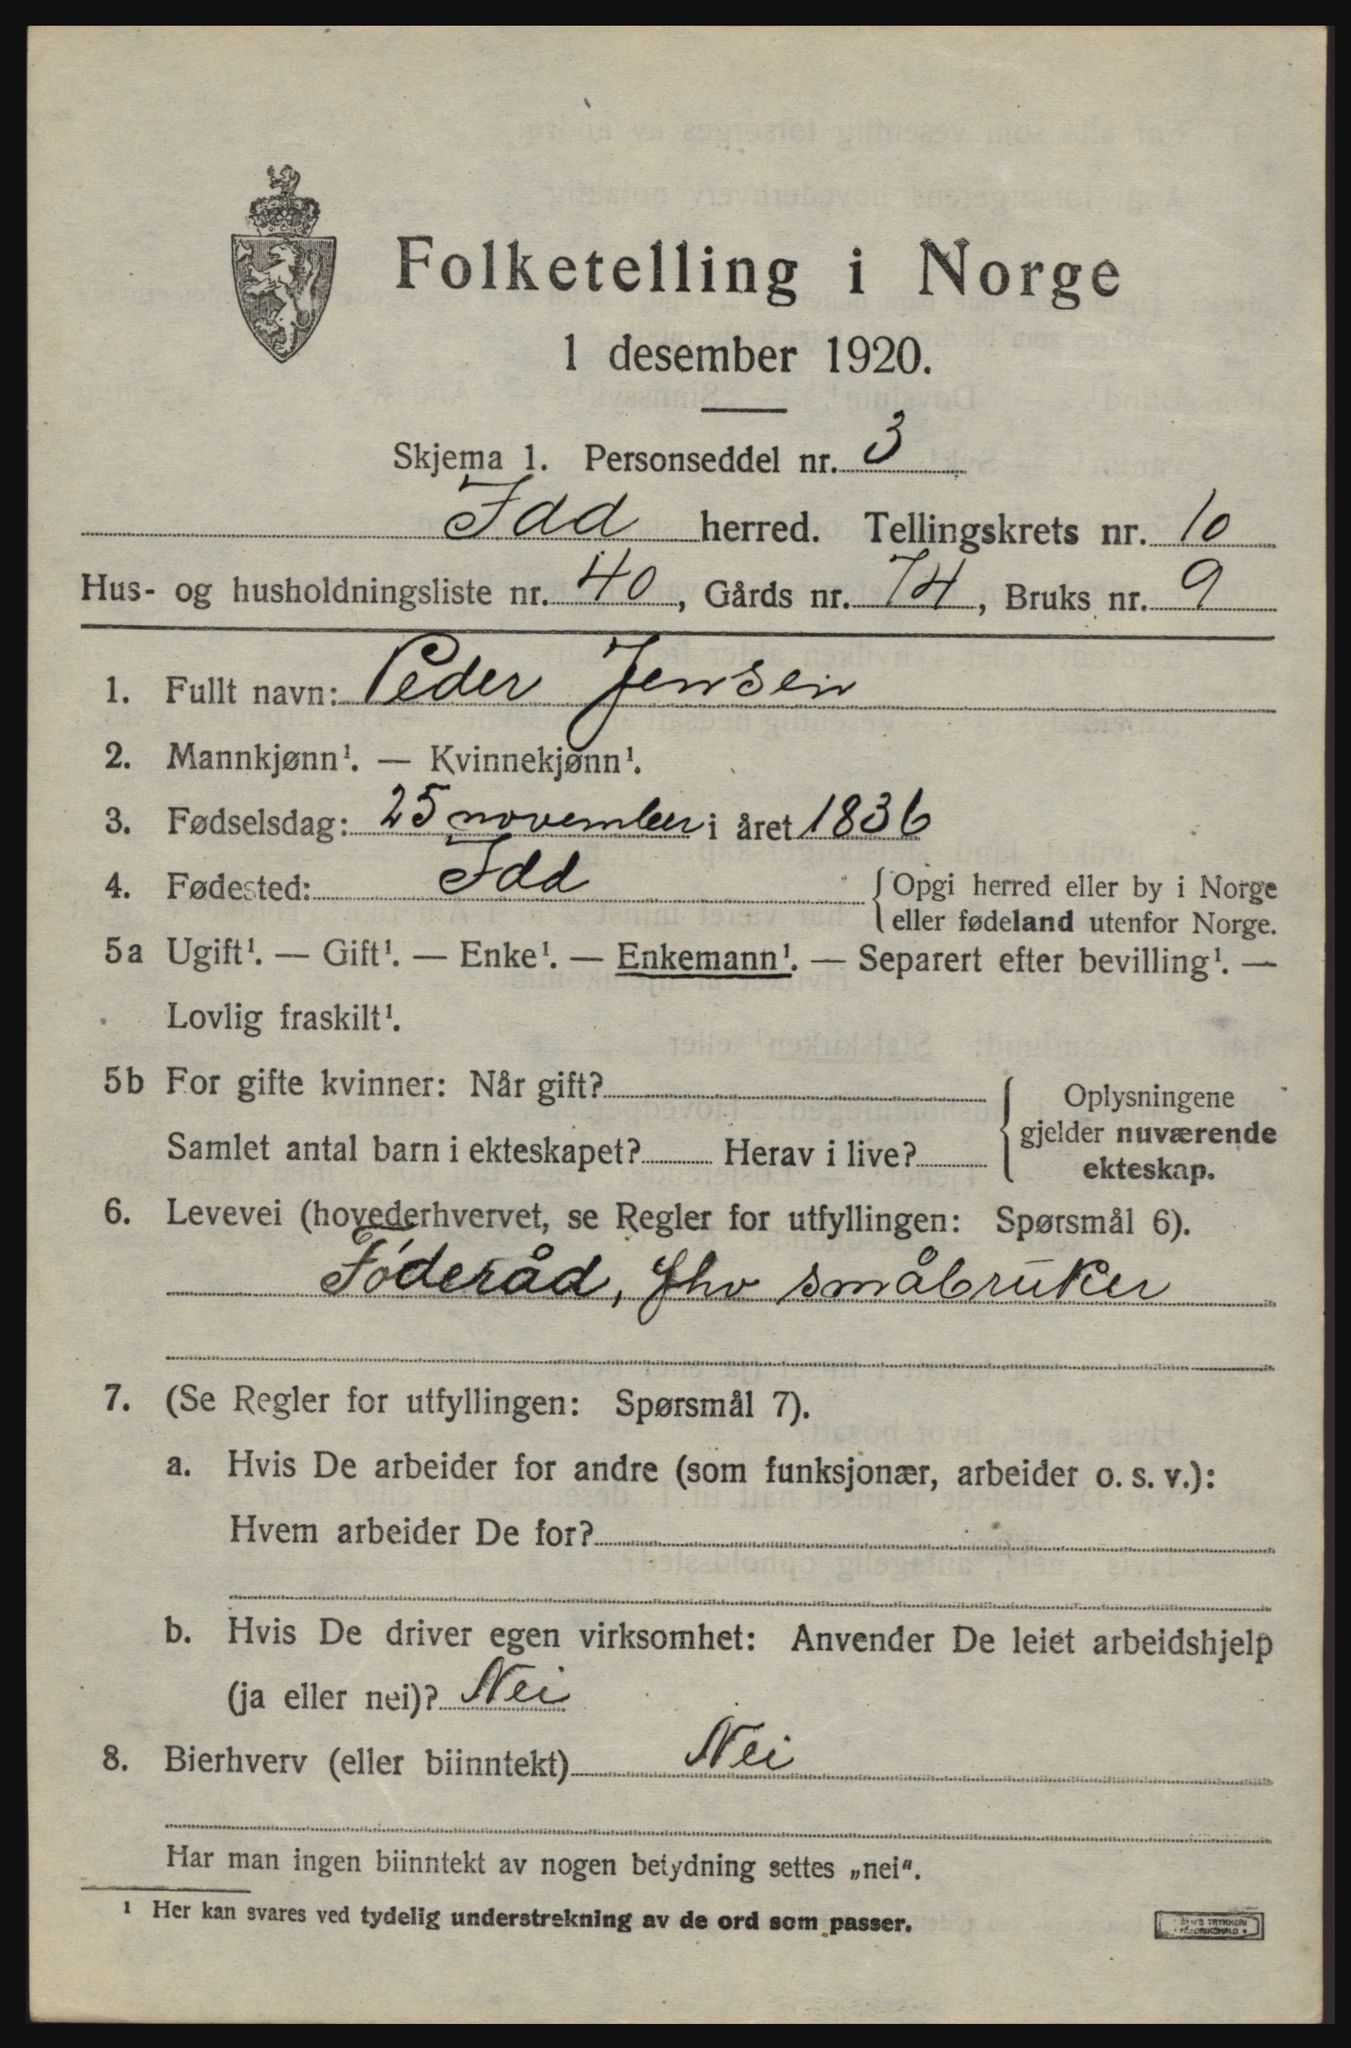 Folketelling i Norge
1 desember 1920.
Skjema 1. Personseddel nr. 3
Idd herred. Tellingskrets nr. 10
Hus- og husholdningsliste nr. 40, Gårds nr. 74, Bruks nr. 9
1. Fullt navn: Peder Jensen
2. Mannkjønn¹. — Kvinnekjønn¹.
3. Fødselsdag: 25 november i året 1836
4. Fødested: Idd {Opgi herred eller by i Norge
eller fødeland utenfor Norge.
5a Ugift¹. — Gift¹. — Enke¹. — Enkemann¹. — Separert efter bevilling¹. —
Lovlig fraskilt¹.
5b For gifte kvinner: Når gift?
Samlet antal barn i ekteskapet? Herav i live?
{Oplysningene
gjelder nuværende
ekteskap.
6. Levevei (hovederhvervet, se Regler for utfyllingen: Spørsmål 6).
Føderåd, fhv småbruker
7. (Se Regler for utfyllingen: Spørsmål 7).
a. Hvis De arbeider for andre (som funksjonær, arbeider o. s. v.):
Hvem arbeider De for?
b. Hvis De driver egen virksomhet: Anvender De leiet arbeidshjelp
(ja eller nei)? Nei
8. Bierhverv (eller biinntekt) Nei
Har man ingen biinntekt av nogen betydning settes „nei".
¹ Her kan svares ved tydelig understrekning av de ord som passer.